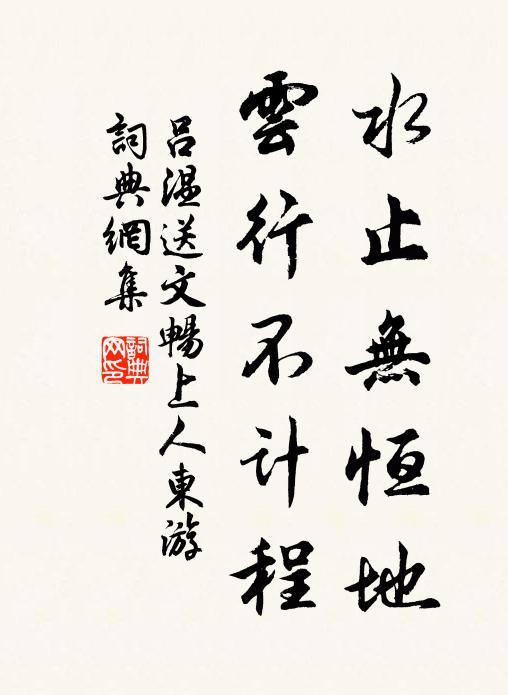 水止無恒地
雲行不計程
呂溫送文暢上人東游
詞典網集
詞典网印